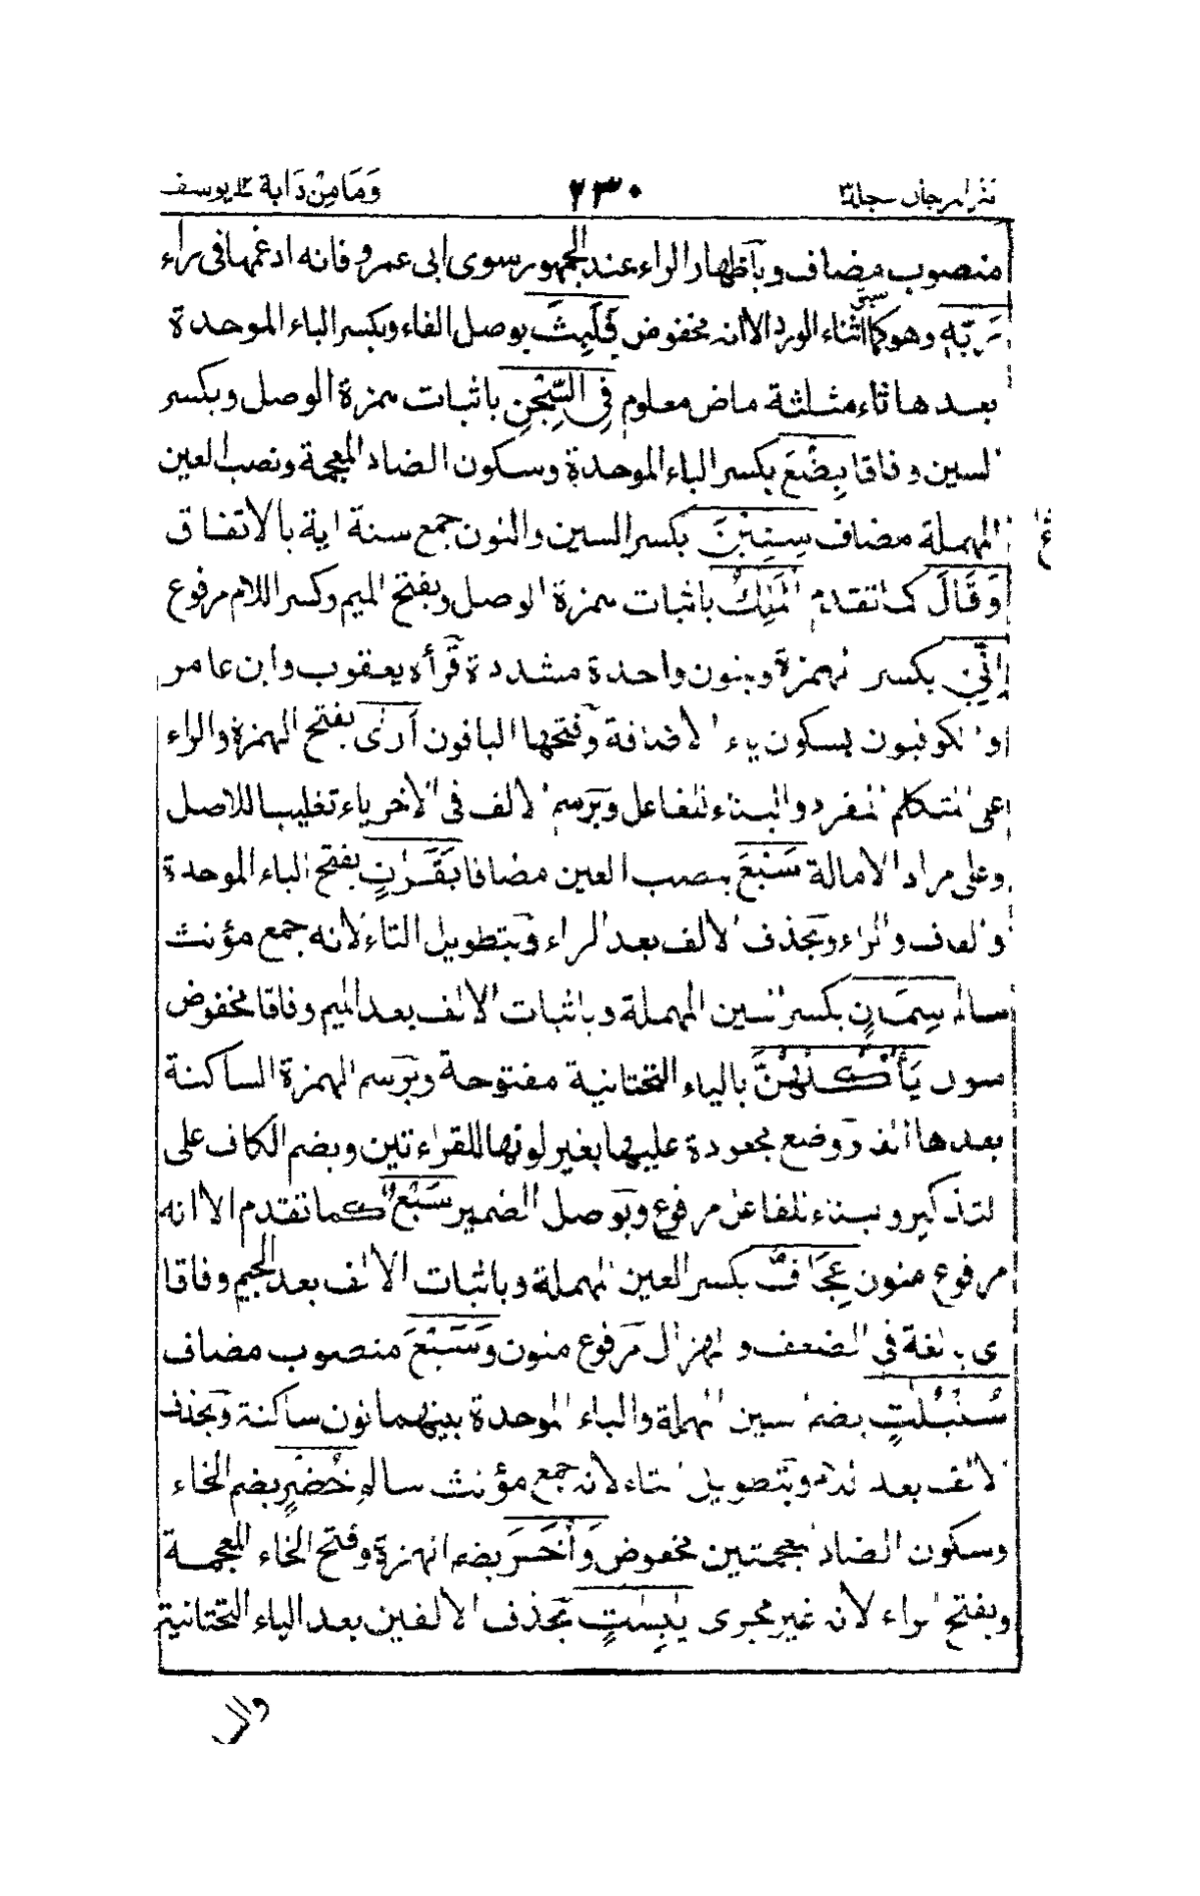 نثر المرجان جلد٣ ٢٣٠ وَمَا مِنْ دَابة ١٢ يوسف
منصوب مضاف وبآظهار الراء عند الجمهور سوى ابى عمرو فانه ادغمها فى راء
رَبِّهٖ وهو كما سبق اثناء الورد الا انه مخفوض فَلَبِثَ بوصل الفاء وبكسر الباء الموحدة
بعدها ثاء مثلثة ماض معلوم فِى السِّجْنِ باثبات همزة الوصل وبكسر
السين وفاقا بِضْعَ بكسر الباء الموحدة وسكون الضاد المعجمة ونصب العين
المهملة مضاف سِنِيْنَ بكسر السين والنون جمع سنة اية بالاتفاق
وَقَالَ كما تقدم الْمَلِكُ باثبات همزة الوصل وبفتح الميم وكسر اللام مرفوع
اِنِّىْ بكسر الهمزة وبنون واحدة مشددة قرأه يعقوب وابن عامر
والكوفيون بسكون ياء الاضافة وفتحها الباقون اَرٰى بفتح الهمزة والراء
على المتكلم المفرد والبناء للفاعل وبرسم الالف فى الاخر ياء تغليبا للاصل
وعلى مراد الامالة سَبْعَ بنصب العين مضافا بَقَرٰتٍ بفتح الباء الموحدة
والقاف والراء وبحذف الالف بعد الراء وبتطويل التاء لانه جمع مؤنث
سالم سِمَانٍ بكسر السين المهملة وباثبات الالف بعد الميم وفاقا مخفوض
منون يَأْكُلُهُنَّ بالياء التحتانية مفتوحة وبرسم الهمزة الساكنة
بعدها الف ووضع مجعودة عليها بغير لونها للقراءتين وبضم الكاف على
التذكير وببناء للفاعل مرفوع وبوصل الضمير سَبْعٌ كما تقدم الا انه
مرفوع منون عِجَافٌ بكسر العين المهملة وباثبات الالف بعد الجيم وفاقا
اى بالغة فى الضعف والهزال مرفوع منون وَسَبْعَ منصوب مضاف
سُنْبُلٰتٍ بضم السين المهملة والباء الموحدة بينهما نون ساكنة وبحذف
الالف بعد اللام وبتطويل التاء لانه جمع مؤنث سالم خُضْرٍ بضم الخاء
وسكون الضاد المعجمتين مخفوض وَاُخَرَ بضم الهمزة وفتح الخاء المعجمة
وبفتح الراء لانه غير مجرى يٰبِسٰتٍ بحذف الالفين بعد الياء التحتانية